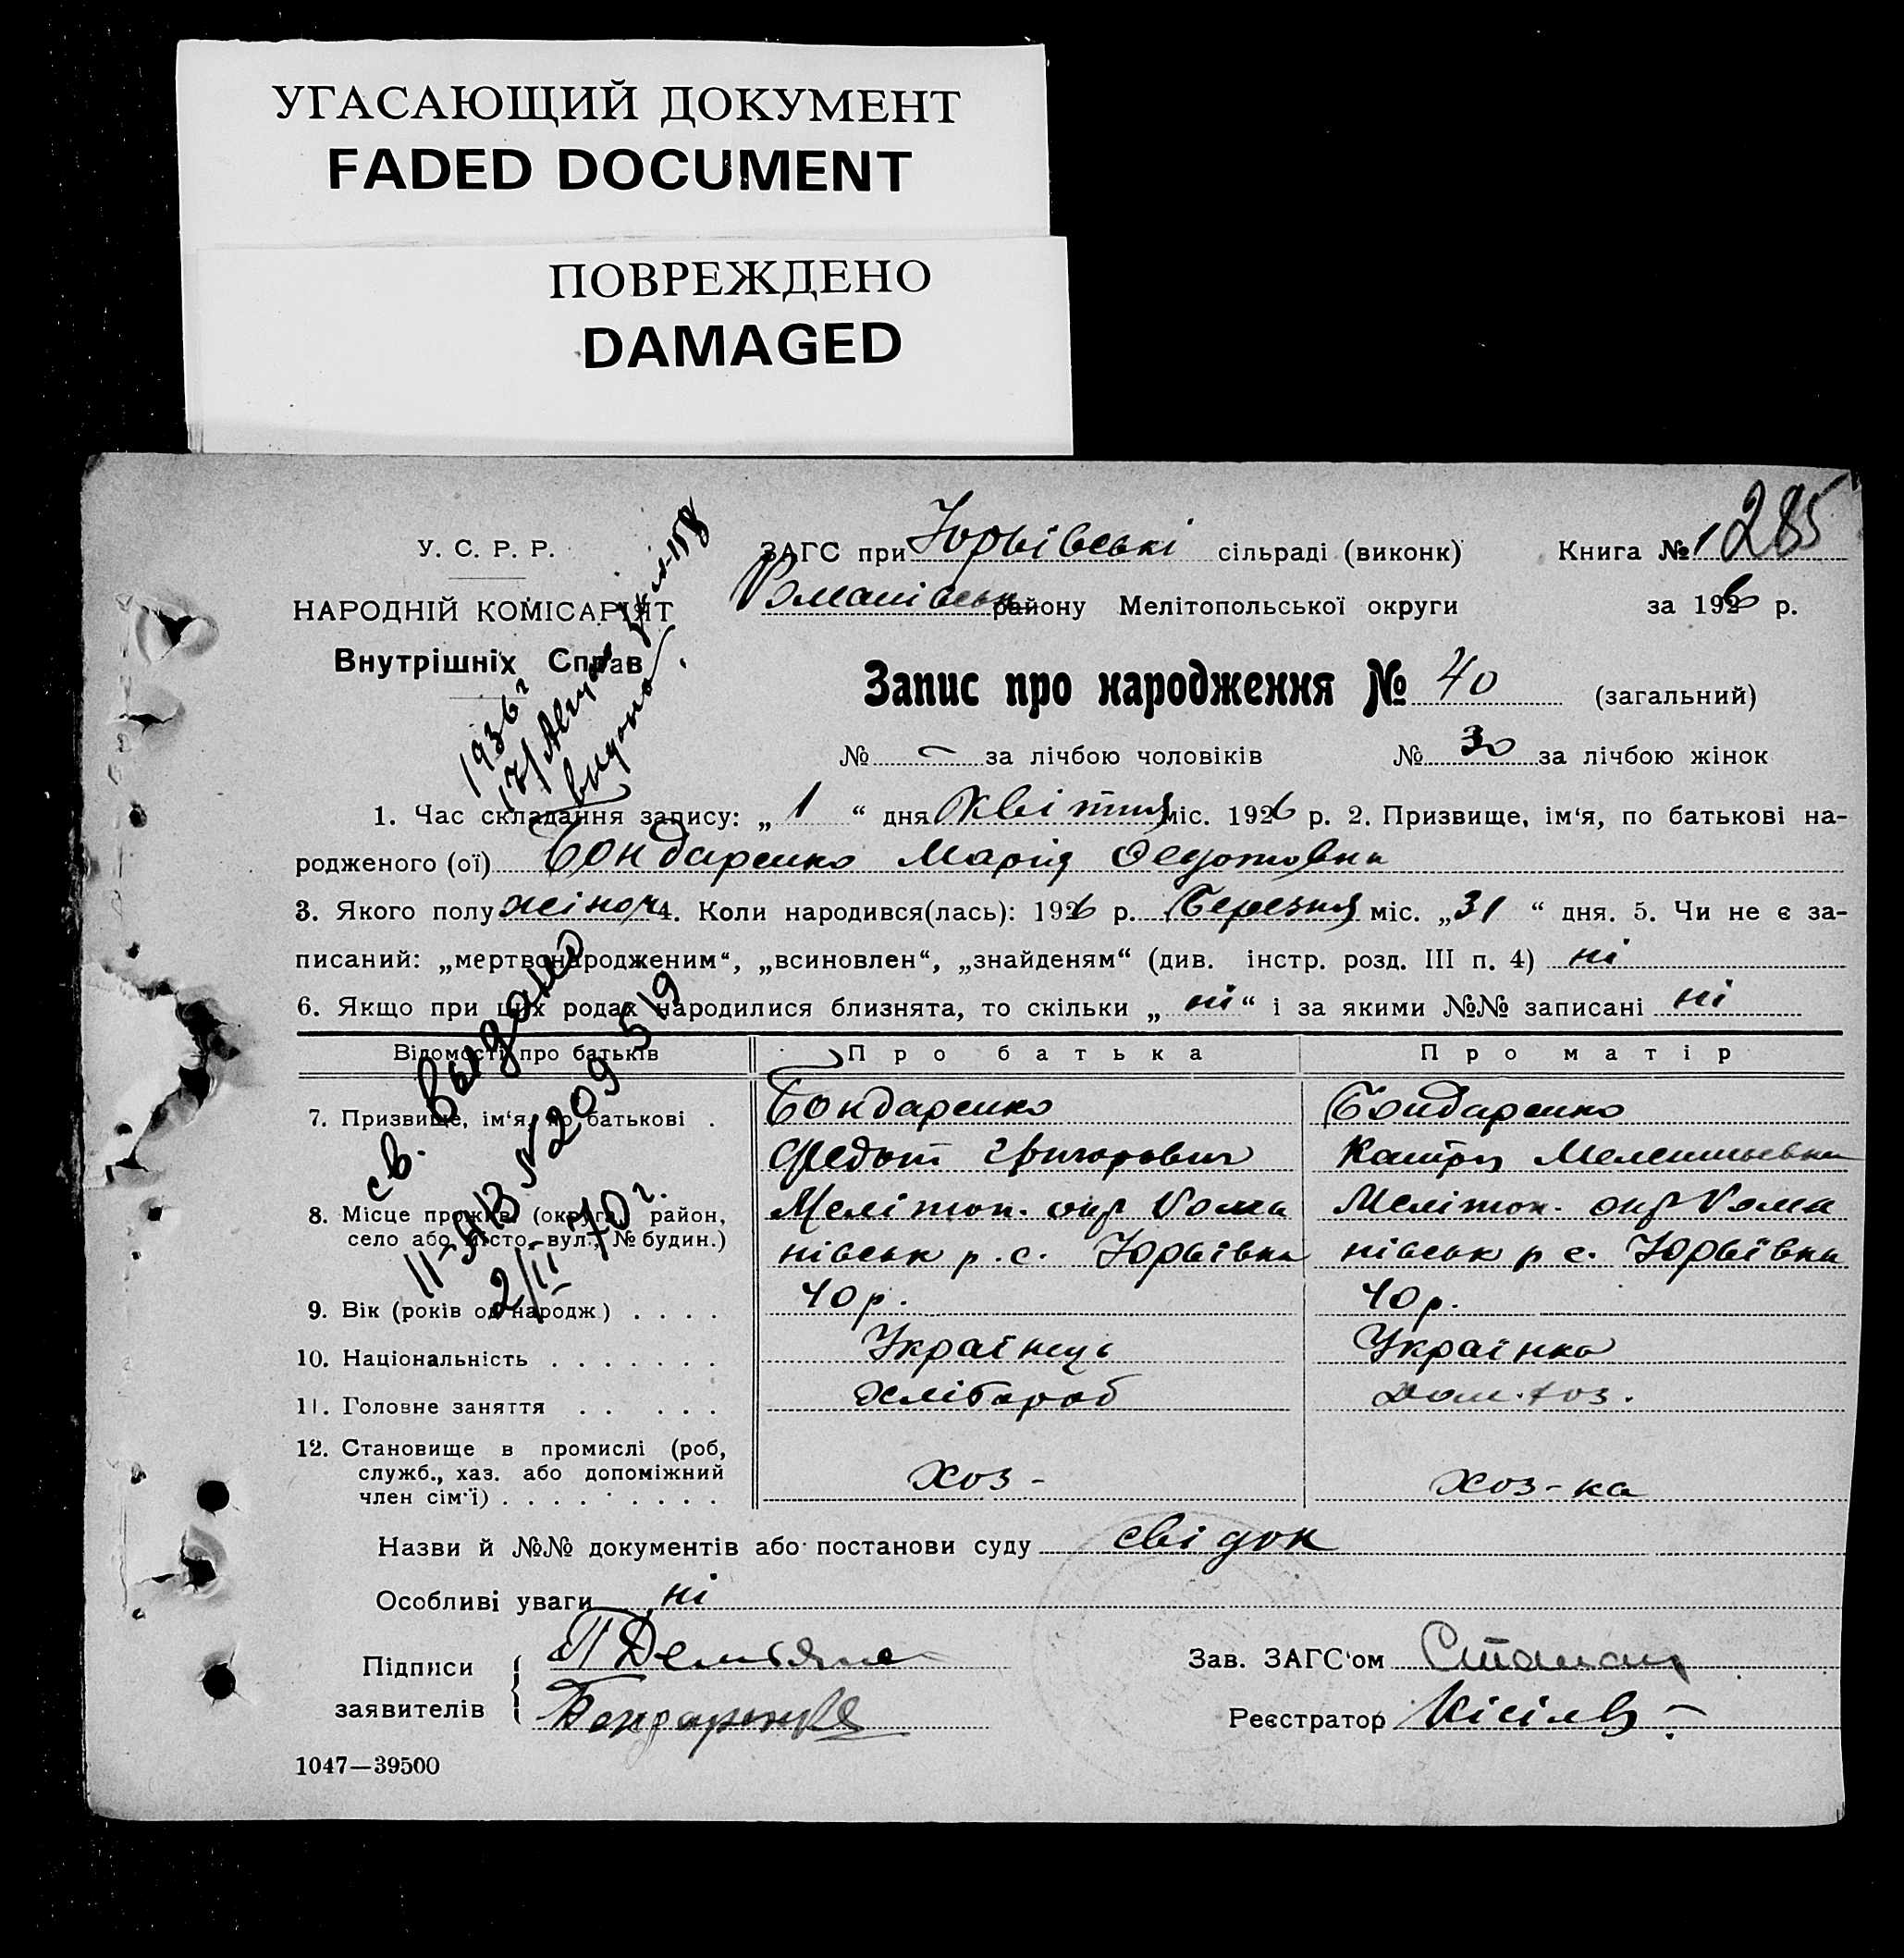 УГАСАЮЩИЙ ДОКУМЕНТ
FADED DOCUMENT
ПОВРЕЖДЕНО
DAMAGED
У. С. Р. Р.
НАРОДНІЙ КОМІСАРІЯТ
Внутрішніх Справ
ЗАГС при Юрьївські сільраді (виконк) Книга № 1 285
Романівськ району Мелітопольської округи за 1926 р.
Запис про народження № 40 (загальний)
№ – за лічбою чоловіків № 30 за лічбою жінок
1936 г
видано
1. Час складання запису: „ 1 “ дня Квітня міс. 1926 р. 2. Призвище, ім‘я, по батькові на-
родженого (ої) Бондаренко Марія Федотовна
3. Якого полу жіноч 4. Коли народився(лась): 1926 р. Березня міс. „31 “ дня. 5. Чи не є за-
писаний: „мертвонародженим“, „всиновлен“, „знайденям“ (див. інстр. розд. III п. 4) ні
6. Якщо при цих родах народилися близнята, то скільки „ ні “ і за якими №№ записані ні
св. выдано
II-ЯВ №209519
2/III-70 г.
Відомості про батьків Про батька Про матір
7. Призвище, ім‘я, по батькові . Бондаренко Бондаренко
Федот Григорович Катря Мелентьевна
8. Місце прожив. (округа, район, Мелітоп. окр Рома Мелітоп. окр Рома
село або місто, вул., № будин.) нівськ р. с. Юрьївка нівськ р с. Юрьївка
9. Вік (років од народж.) . . . . 40 р. 40 р.
10. Національність . . . . . . . Українець Українка
11. Головне заняття . . . . . Хлібороб дом. хоз.
12. Становище в промислі (роб,
служб., хаз. або допоміжний хоз - хоз-ка
член сім‘ї) . . . . . . . . .
Назви й №№ документів або постанови суду свідок
Особливі уваги ні
Підписи
заявителів
Бондаренко
Зав. ЗАГС‘ом
Реєстратор Кісіль
1047—39500